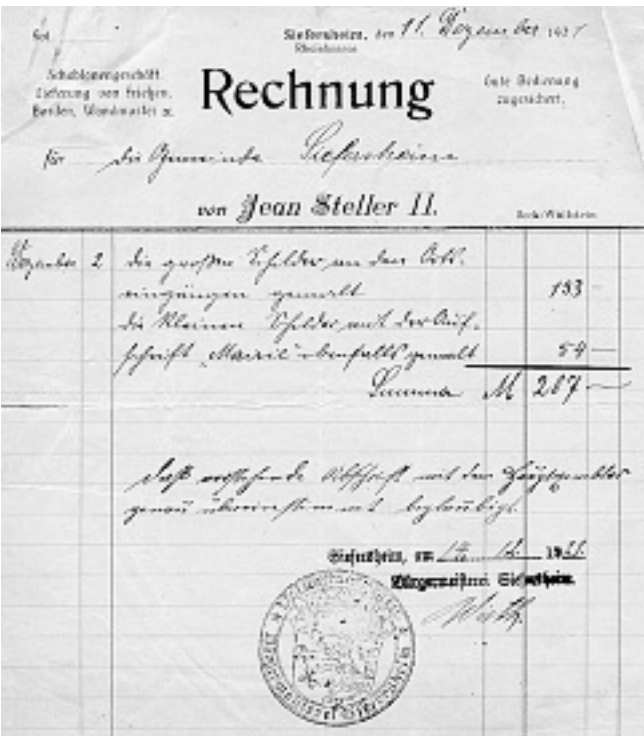 Siefersheim, den 11. Dezember 19
Rheinhessen
Schablonengeschäft
Lieferung von frischen
Borden, Wandmuster
Rechnung
Gute Bedienung
zugesichert.
für die Gemeinde Siefersheim
von Jean Steller II.
Dezember 2 die großen Schilder an den Orts-
eingängen gemalt 153 —
die kleinen Schilder mit der Auf-
schrift „Mairie“ ebenfalls gemalt 54 —
Summa M 207 —
Daß vorstehende Abschrift mit dem
genau übereinstimmt beglaubigt
Siefersheim, am 12. 19
Bürgermeisterei Siefersheim